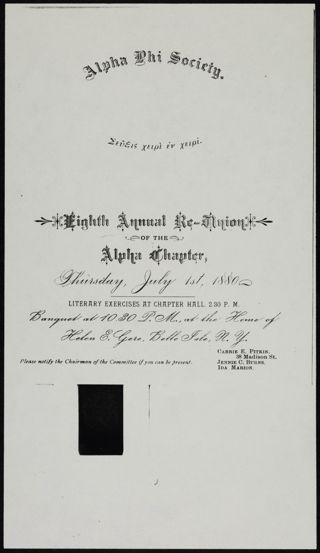 Alpha Phi Society.
Σεῦξις χειρὶ ἐν χειρί.
Eighth Annual Re-Union
OF THE
Alpha Chapter,
Thursday, July 1st, 1880
LITERARY EXERCISES AT CHAPTER HALL, 2.30 P. M.
Banquet at 10.30 P. M., at the Home of
Helen E. Gere, Belle Isle, N. Y.
CARRIE E. PITKIN,
38 Madison St.
JENNIE C. BURNS,
IDA MARION.
Please notify the Chairman of the Committee if you can be present.